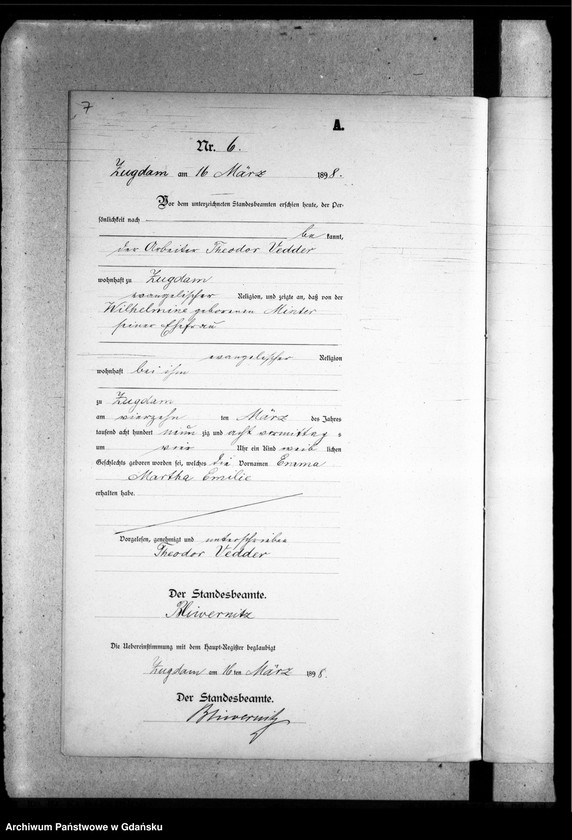 7
A.
Nr. 6.
Zugdam am 16 März 1898.
Vor dem unterzeichneten Standesbeamten erschien heute, der Per-
sönlichkeit nach
be kannt,
der Arbeiter Theodor Vedder
wohnhaft zu Zugdam
evangelischer Religion, und zeigte an, daß von der
Wilhelmine geborenen Minter
seiner Ehefrau
evangelischer Religion
wohnhaft bei ihm
zu Zugdam
am vierzehn ten März des Jahres
tausend acht hundert neun zig und acht vormittag s
um Uhr ein Kind weib lichen
Geschlechts geboren worden sei, welches die Vornamen Emma
Martha Emilie
erhalten habe.
Vorgelesen, genehmigt und unterschrieben
Theodor Vedder
Der Standesbeamte.
Die Uebereinstimmung mit dem Haupt-Register beglaubigt
Zugdam am 16 ten März 1898.
Der Standesbeamte.
Archiwum Państwowe w Gdańsku